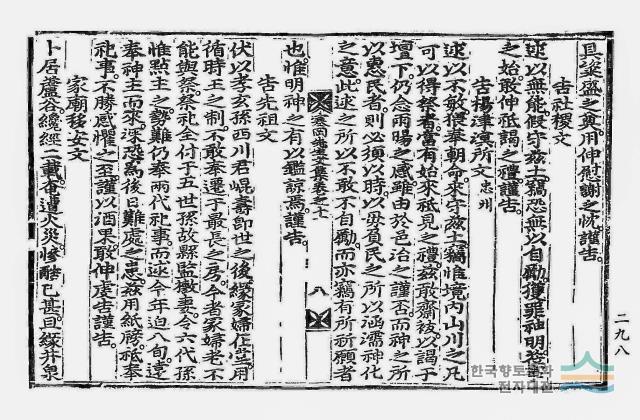 且粢盛之奠用伸慰謝之忱謹告。
告社稷文
逑以無能假守玆土竊恐無以自勵獲罪神明茬官
之始敢伸祗謁之禮謹告。
告楊津溟所文 忠州
逑以不敢猥奉朝命來守玆土竊惟境內山川之凡
可以得祭者當有始來祗見之禮玆敢齋祓以謁于
壇下仍念雨暘之感雖由於邑治之謹否而神之所
以惠民者則必須以時以毋負民之所以涵濡神化
之意此逑之所以不敢不自勵而亦竊有所祈願者
寒岡先生文集卷之十 八
也惟明神之有以鑑諒焉謹告。
告先祖文
伏以孝玄孫西川君崐壽卽世之後緣冢婦在堂用
循時王之制不敢奉遷于最長之房今者冢婦老不
能與祭祭祀全付于五世孫故縣監 妻令六代孫
惟黙主之勢難仍奉兩代祀事而逑今年迫八旬遠
奉神主而來深恐爲後日難處之患玆用紙牓祗奉
祀事不勝感懼之至謹以酒果敢伸虔告謹告。
家廟移安文
卜居蘆谷纔經二載奄遭火災慘酷已甚且綴井泉
二九八
한국향토문화
전자대전